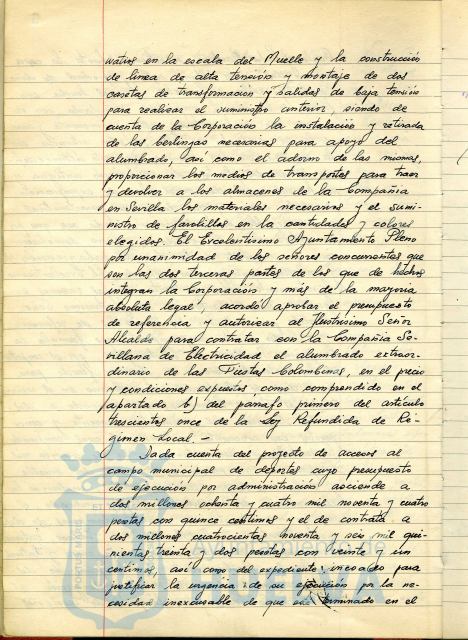 vativos en la escala del Muelle y la construcción
de linea de alta tensión y montaje de dos
casetas de transformación y salidas de baja tensión
para realizar el suministro anterior, siendo de
cuenta de la Corporación la instalación y retirada
de las berlingas necesarias para apoyo del
alumbrado, así como el adorno de las mismas,
proporcionar los medios de transportes para traer
y devolver a los almacenes de la Compañia
en Sevilla los materiales necesarios y el sumi-
nistro de farolillos en la cantidades y colores
elegidos. El Excelentísimo Ayuntamiento Pleno
por unanimidad de los señores concurrentes que
son las dos terceras partes de los que de hecho
integran la Corporación y más de la mayoria
absoluta legal, acordó aprobar el presupuesto
de referencia y autorizar al Ilustrísimo Señor
Alcalde para contratar con la Compañia Se-
villana de Electricidad el alumbrado extraor-
dinario de las Fiestas Colombinas, en el precio
y condiciones expuestos como comprendido en el
apartado b) del párrafo primero del artículo
trescientos once de la Ley Refundida de Ré-
gimen Local.-
Dada cuenta del proyecto de acceso al
campo municipal de deportes cuyo presupuesto
de ejecución por administración asciende a
dos millones ochenta y cuatro mil noventa y cuatro
pesetas con quince centimos y el de contrata a
dos millones cuatrocientas noventa y seis mil qui-
nientas treinta y dos pesetas con veinte y un
centimos, así como del expediente incoado para
justificar la urgencia de su ejecución por la ne-
cesidad inexcusable de que esté terminado en el